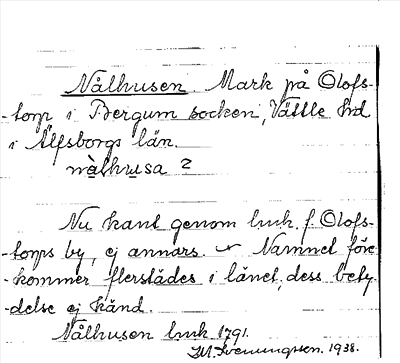 Nålhusen Mark på Olofs-
-torp i Bergum socken, Vättle hrd
i Älfsborgs län.
nålhusa 2
Nu kant genom luk. f. Olofs-
-torps by, ej annars. Namnet före-
-kommer flerstädes i länet, dess bety-
-delse ej känd.
Nålhusen luk 1791.
1938.